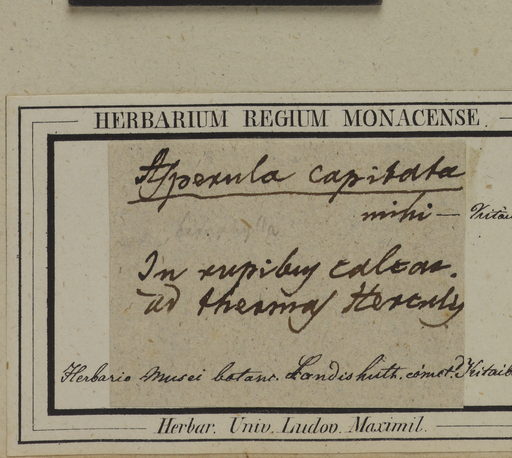 HERBARIUM REGIUM MONACENSE
Asperula capitata
mihi — Kitai
In rupibus calcar.
ad thermas Herculis
Herbario Musei botan. Landishuth. comct. Kitaib
Herbar. Univ. Ludov. Maximil.